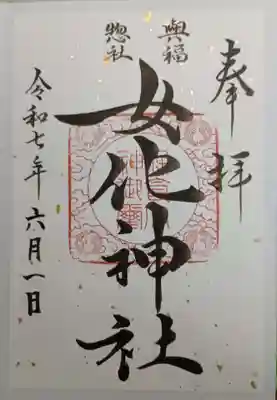 奉拝
興福
惣社
女化神社
令和七年六月一日